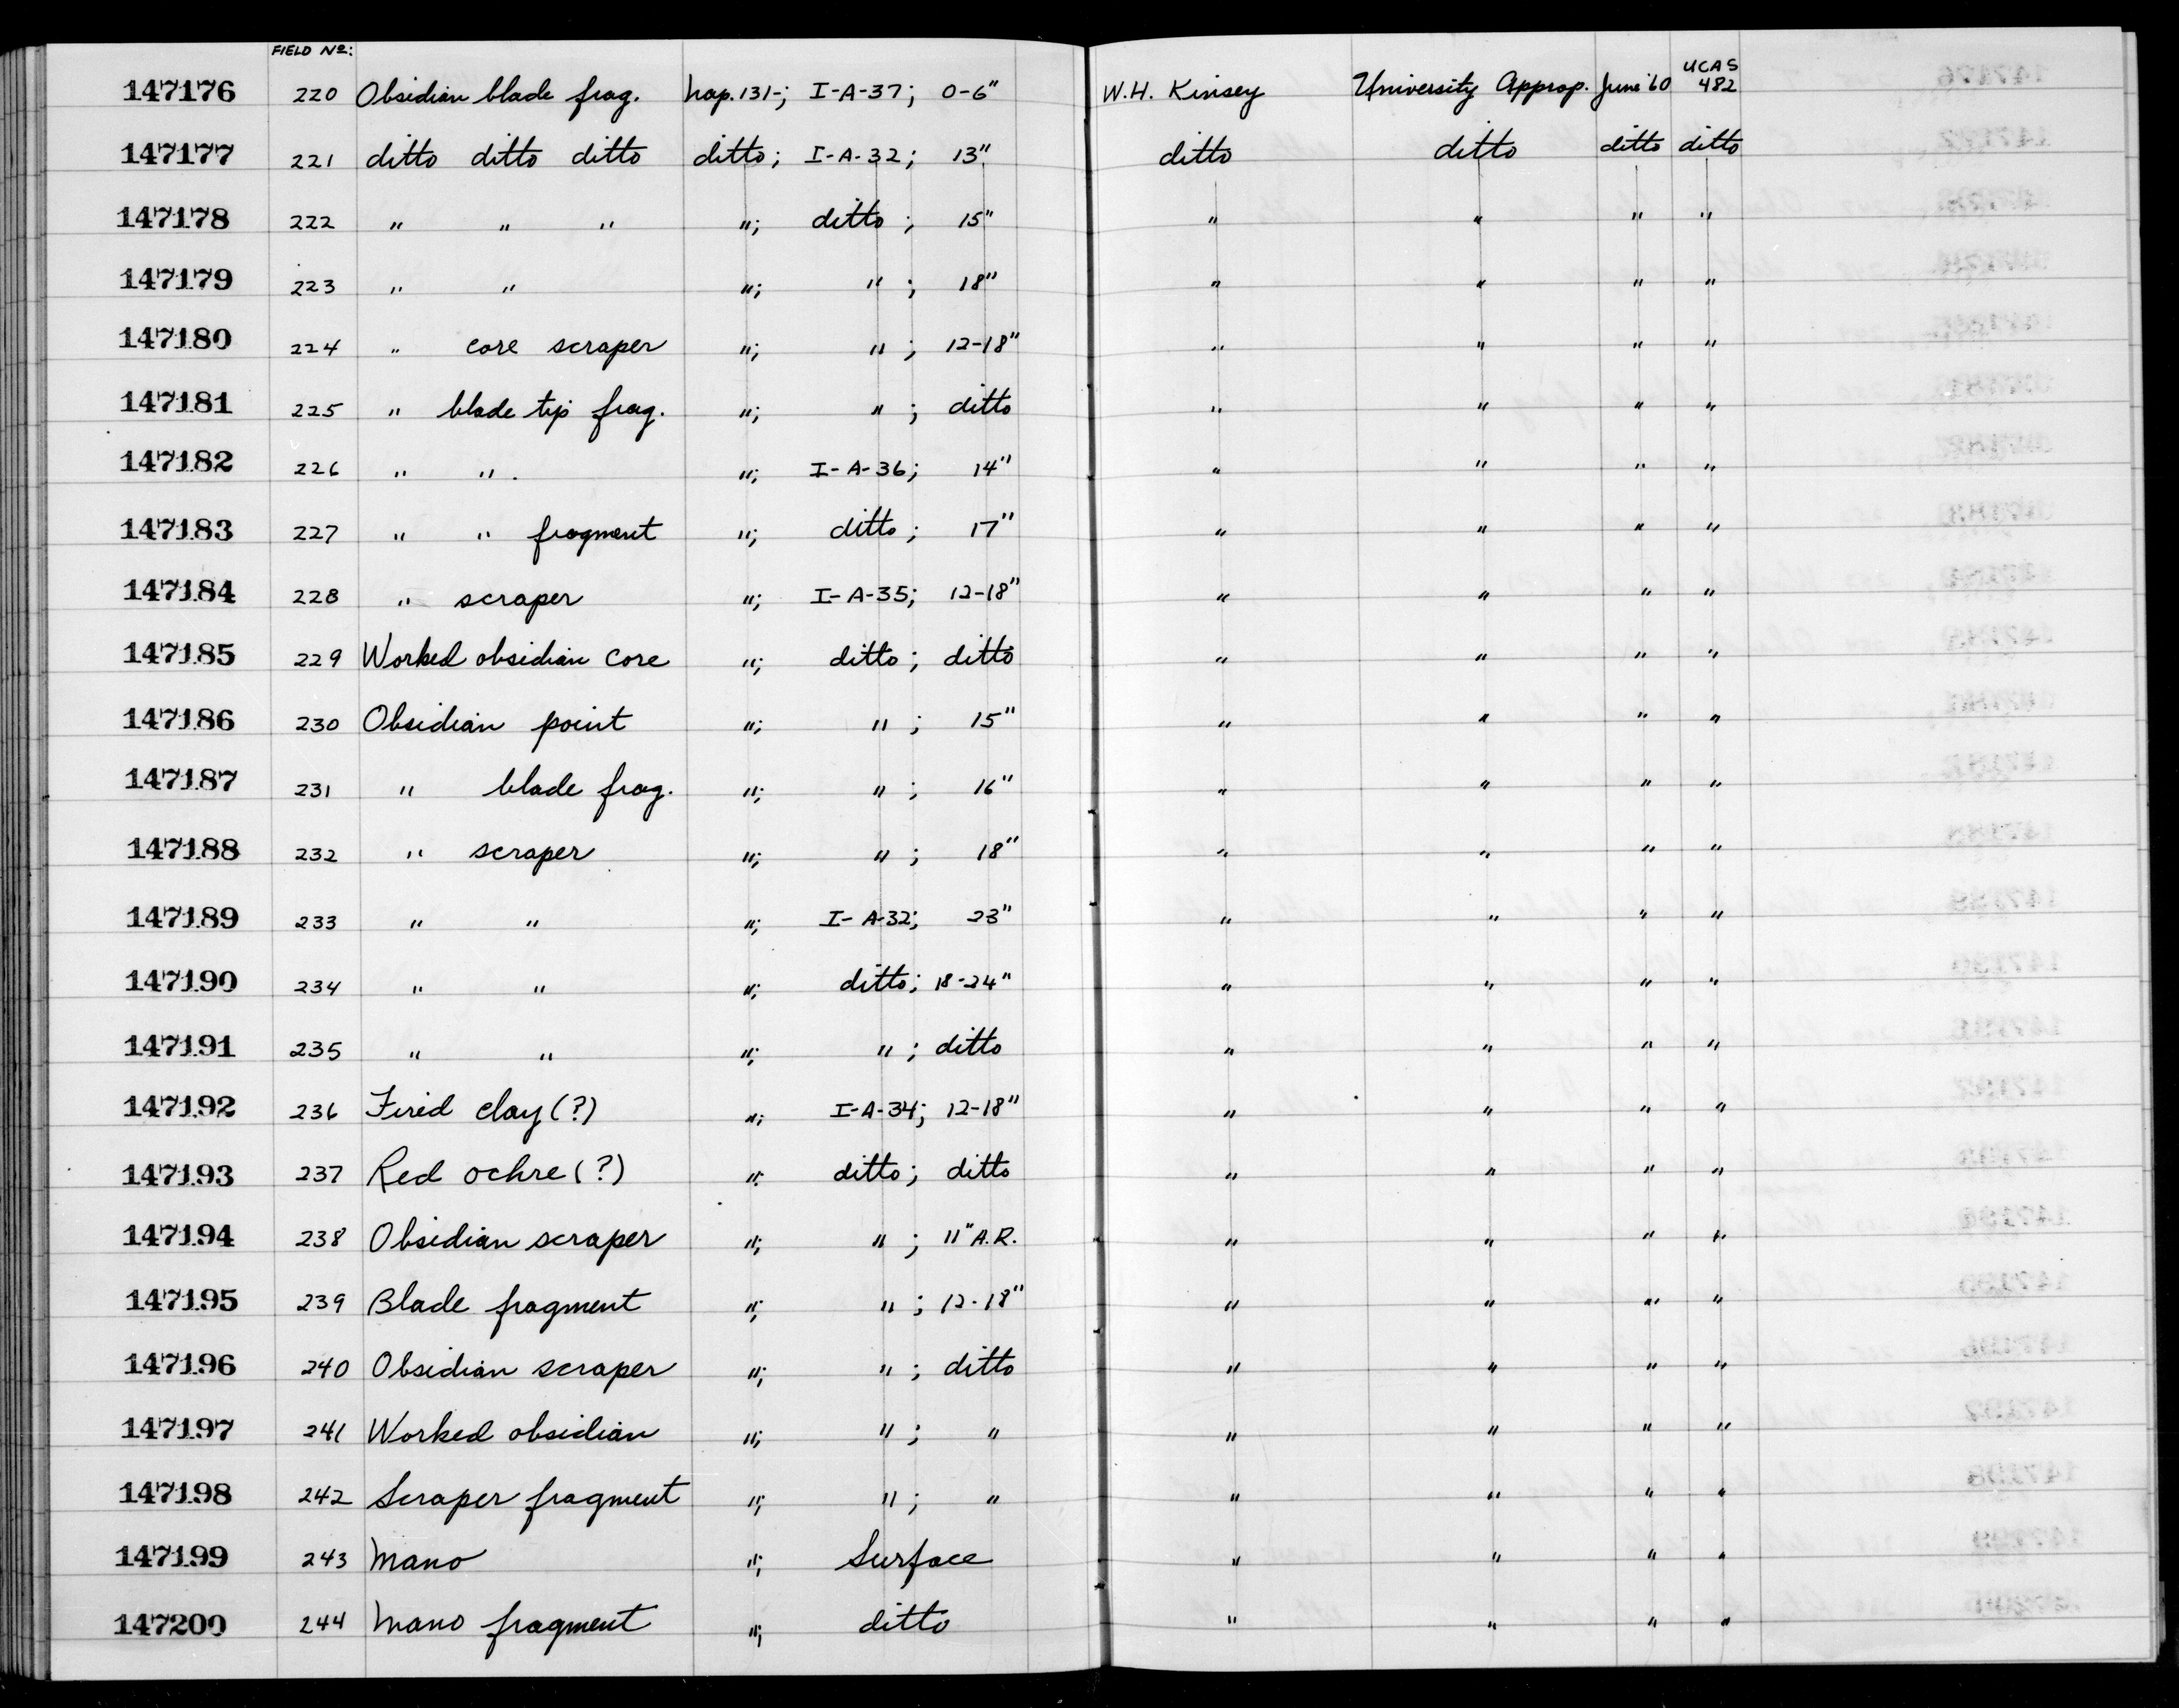 FIELD Nº:
147176 220 Obsidian blade frag. Nap. 131-; I-A-37; 0-6" W.H. Kinsey University Approp. June '60 UCAS 482
147177 221 ditto ditto ditto ditto; I-A-32; 13" ditto ditto ditto ditto
147178 222 " " " "; ditto; 15" " " " "
147179 223 " " "; "; 18" " " " "
147180 224 " core scraper "; "; 12-18" " " " "
147181 225 " blade tip frag. "; "; ditto " " " "
147182 226 " ". "; I-A-36; 14" " " " "
147183 227 " " fragment "; ditto; 17" " " " "
147184 228 " scraper "; I-A-35; 12-18" " " " "
147185 229 Worked obsidian core "; ditto; ditto " " " "
147186 230 Obsidian point "; "; 15" " " " "
147187 231 " blade frag. "; "; 16" " " " "
147188 232 " scraper "; "; 18" " " " "
147189 233 " " "; I-A-32; 23" " " " "
147190 234 " " "; ditto; 18-24" " " " "
147191 235 " " "; "; ditto " " " "
147192 236 Fired clay (?) "; I-A-34; 12-18" " " " "
147193 237 Red ochre (?) "; ditto; ditto " " " "
147194 238 Obsidian scraper "; "; 11" A.R. " " " "
147195 239 Blade fragment "; "; 12-18" " " " "
147196 240 Obsidian scraper "; "; ditto " " " "
147197 241 Worked obsidian "; "; " " " " "
147198 242 Scraper fragment "; "; " " " " "
147199 243 Mano "; Surface " " " "
147200 244 Mano fragment "; ditto " " " "